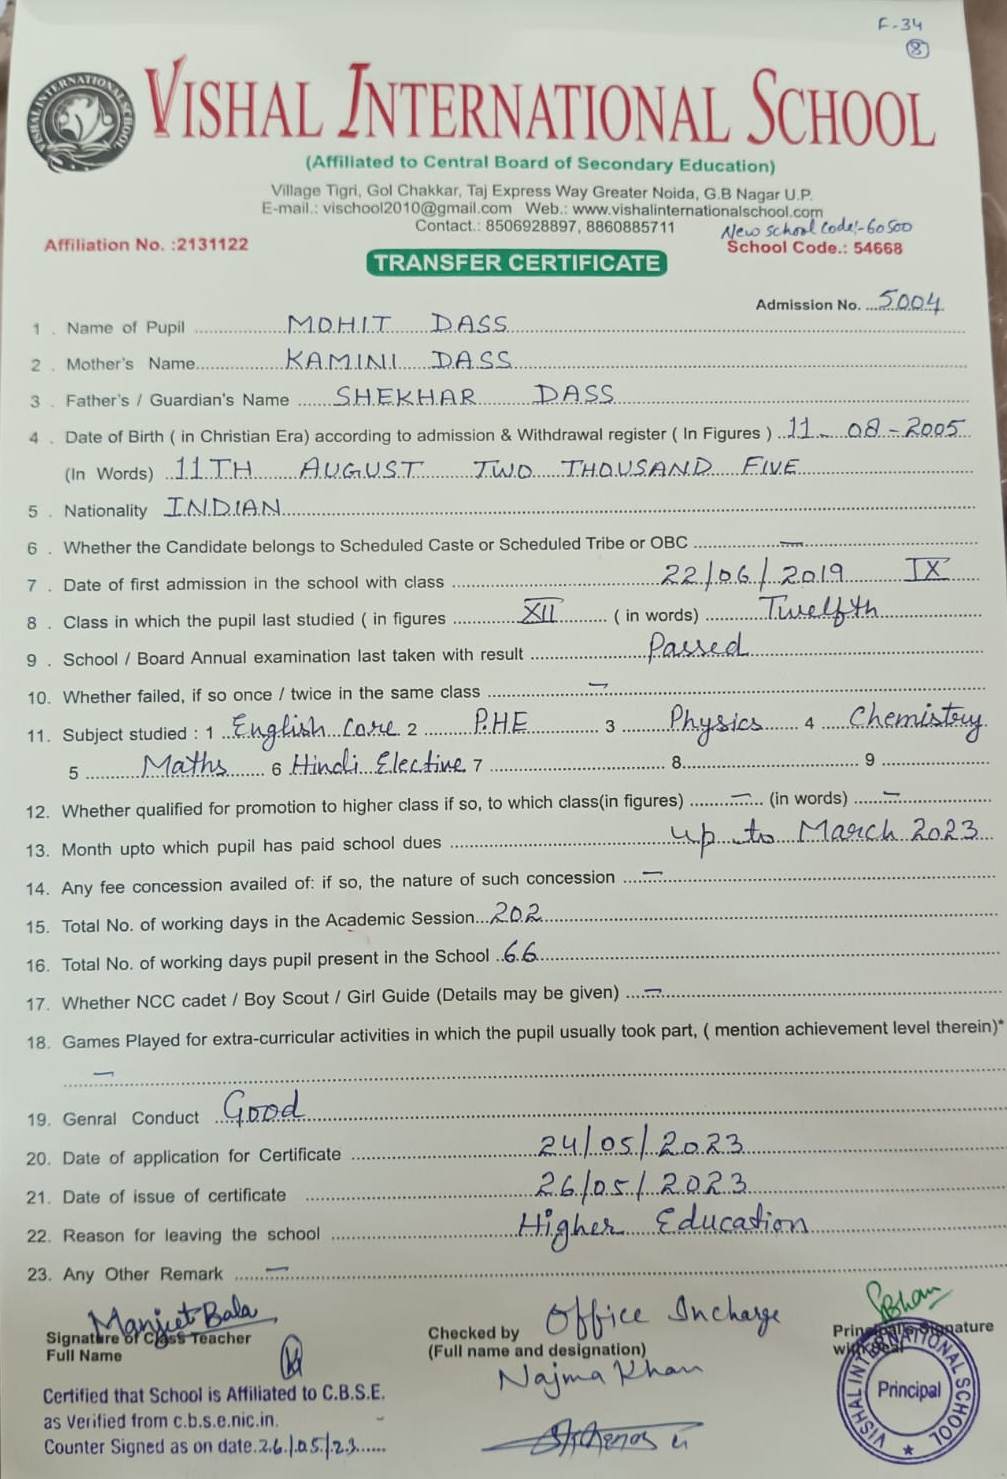 F-34
8
VISHAL INTERNATIONAL SCHOOL
(Affiliated to Central Board of Secondary Education)
Village Tigri, Gol Chakkar, Taj Express Way Greater Noida, G.B Nagar U.P.
E-mail.: vischool2010@gmail.com Web.: www.vishalinternationalschool.com
Contact.: 8506928897, 8860885711
New School Code:- 60500
Affiliation No. :2131122 School Code.: 54668
TRANSFER CERTIFICATE
Admission No. ...5004
1 . Name of Pupil ... MOHIT DASS
2 . Mother's Name... KAMINI DASS
3 . Father's / Guardian's Name ... SHEKHAR DASS
4 . Date of Birth ( in Christian Era) according to admission & Withdrawal register ( In Figures ) .. 11 - 08 - 2005
(In Words) .. 11TH AUGUST TWO THOUSAND FIVE
5 . Nationality INDIAN
6 . Whether the Candidate belongs to Scheduled Caste or Scheduled Tribe or OBC ... —
7 . Date of first admission in the school with class ... 22/06/2019 IX
8 . Class in which the pupil last studied ( in figures ... XII ... ( in words) ... Twelfth
9 . School / Board Annual examination last taken with result ... Passed
10. Whether failed, if so once / twice in the same class ... —
11. Subject studied : 1 .. English Core 2 ... P.HE ... 3 ... Physics ... 4 ... Chemistry
5 ... Maths ... 6 Hindi Elective 7 ... 8... 9 ...
12. Whether qualified for promotion to higher class if so, to which class(in figures) ... — ... (in words) ... —
13. Month upto which pupil has paid school dues ... up to March 2023
14. Any fee concession availed of: if so, the nature of such concession ... —
15. Total No. of working days in the Academic Session... 202
16. Total No. of working days pupil present in the School .. 66
17. Whether NCC cadet / Boy Scout / Girl Guide (Details may be given) ... —
18. Games Played for extra-curricular activities in which the pupil usually took part, ( mention achievement level therein)*
—
19. Genral Conduct ... Good
20. Date of application for Certificate ... 24/05/2023
21. Date of issue of certificate ... 26/05/2023
22. Reason for leaving the school ... Higher Education
23. Any Other Remark ... —
Manjeet Bala
Signature of Class Teacher
Full Name
Checked by Office Incharge
(Full name and designation)
Najma Khan
Principal's Signature
with seal
VISHAL INTERNATIONAL SCHOOL
Principal
Certified that School is Affiliated to C.B.S.E.
as Verified from c.b.s.e.nic.in.
Counter Signed as on date. 26/05/23......